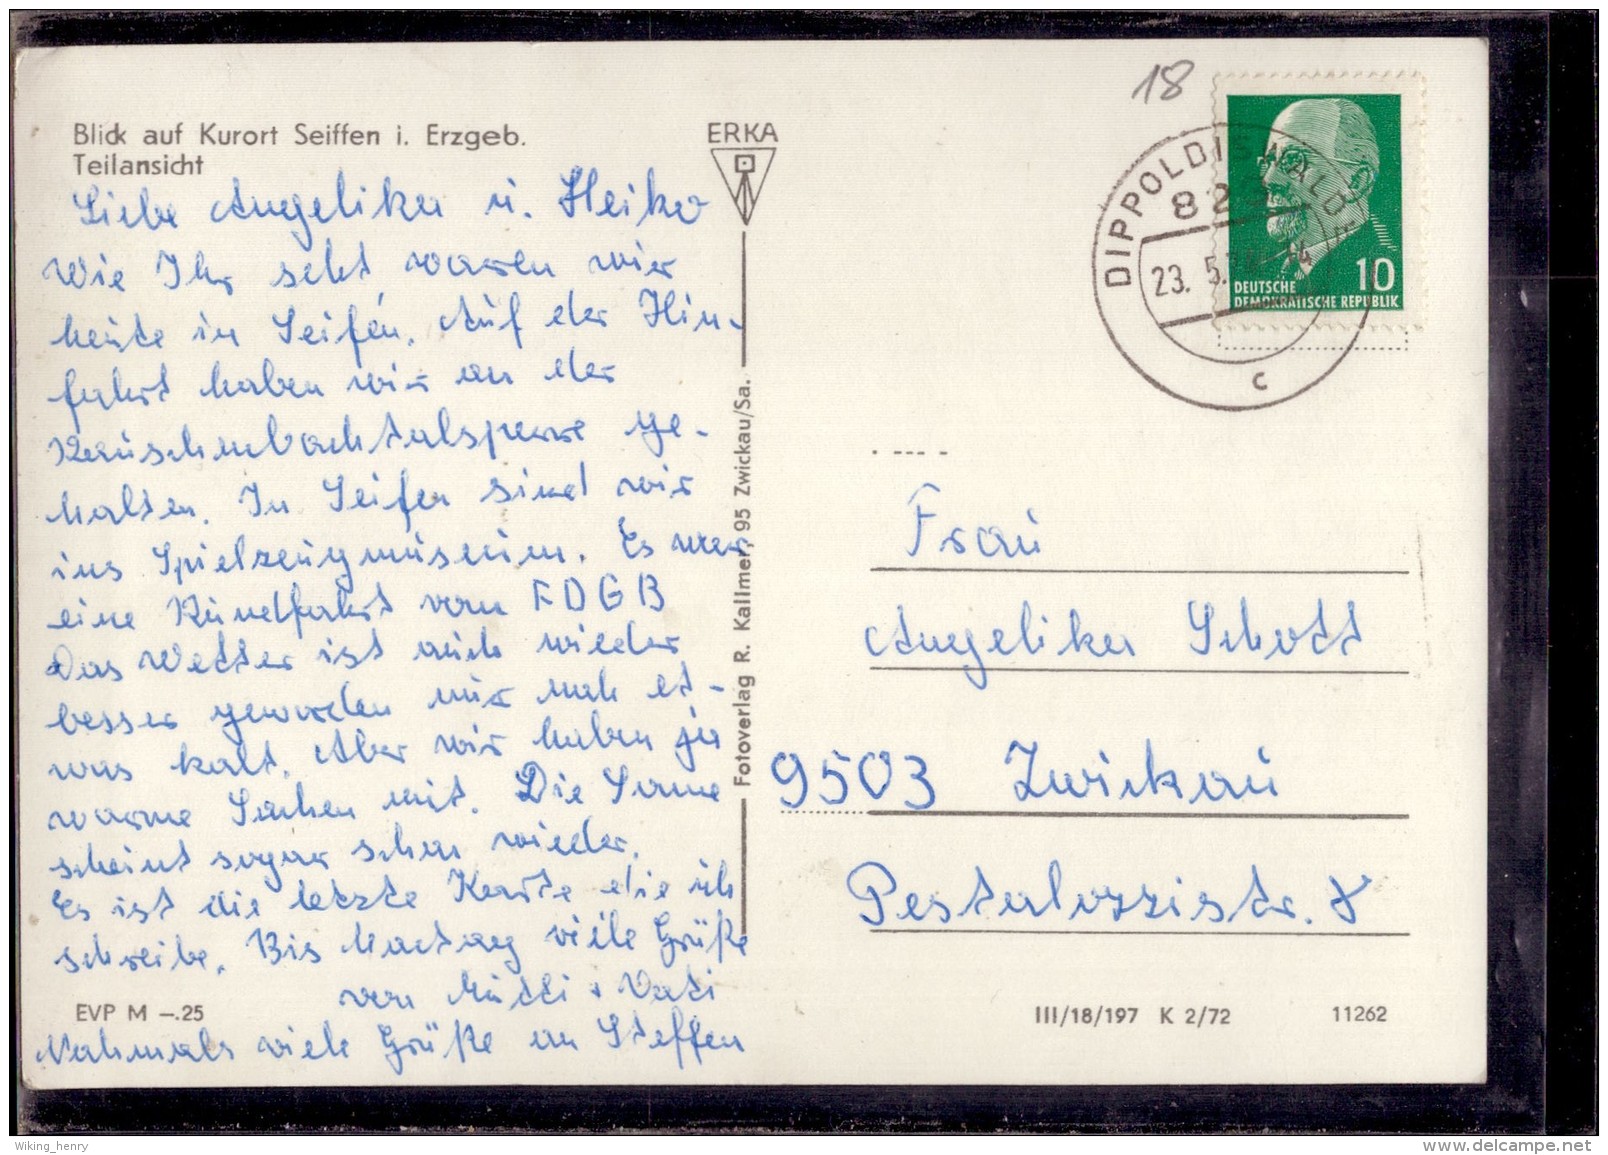 Blick auf Kurort Seiffen i. Erzgeb.
Teilansicht
Liebe Angelika u. Heiko
Wie Ihr seht waren wir
heute in Seifen. Auf der Hin-
fahrt haben wir an der
Rauschenbachtalsperre ge-
halten. In Seifen sind wir
ins Spielzeugmuseum. Es war
eine Rundfahrt vom FDGB
Das Wetter ist auch wieder
besser geworden nur noch et-
was kalt. Aber wir haben ja
warme Sachen mit. Die Sonne
scheint sogar schon wieder.
Es ist die letzte Karte die ich
schreibe. Bis Montag viele Grüße
von Mutti + Vati
Nahmals viele Grüße an Steffen
EVP M –.25
ERKA
Fotoverlag R. Kallmer, 95 Zwickau/Sa.
18
DIPPOLDISWALDE
23. 5.
c
10
DEUTSCHE
DEMOKRATISCHE REPUBLIK
Frau
Angelika Schott
9503 Zwickau
Pestalozzistr. 8
III/18/197 K 2/72 11262
Wiking_henry
www.delcampe.net